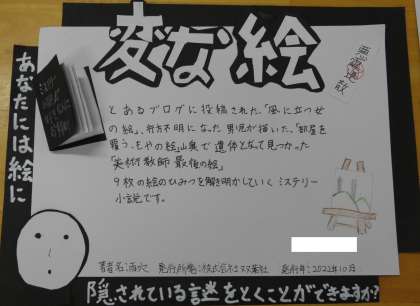 変な絵
あなたには絵に
とあるブログに投稿された、「風に立つ女
の絵」、行方不明になった男児が描いた、「部屋を
覆う、もやの絵」山奥で遺体となって見つかった
「美術教師最後の絵」
9枚の絵のひみつを解き明かしていくミステリー
小説です。
著者名:雨穴 発行所:株式会社双葉社 発行年:2022年10月
隠されている謎をとくことができますか?